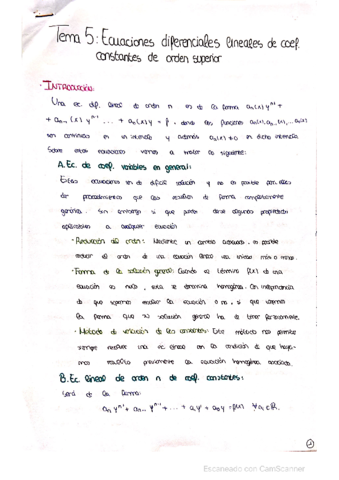 Tema 5: Ecuaciones diferenciales lineales de coef.
constantes de orden superior
· INTRODUCCIÓN:
Una ec. dif. lineal de orden n es de la forma aₙ(x) yⁿ +
+ aₙ₋₁(x) yⁿ⁻¹ ... + a₀(x) y = f, donde las funciones
son continuas en un intervalo y además aₙ(x) ≠ 0 en dicho intervalo
Sobre estas ecuaciones vamos a tratar lo siguiente:
A. Ec. de coef. variables en general:
Estas ecuaciones son de difícil solución y no es posible
de procedimientos que las resuelvan de forma completamente
general. Sin embargo si que puedo decir algunas propiedades
aplicables a cualquier ecuación
· Reducción del orden: Mediante un cambio adecuado, es posible
reducir el orden de una ecuación lineal
· Forma de la solución general: Cuando el término f(x) de una
ecuación es nulo, esta se denomina homogénea. Con independencia
de que sepamos resolver la ecuación o no, si que sabemos
la forma que su solución general ha de tener
· Método de variación de las constantes: Este método nos permite
siempre resolver una ec lineal con la condición de que haya-
mos resuelto previamente la ecuación homogénea asociada.
B. Ec. lineal de orden n de coef. constantes:
Será de la forma:
aₙ yⁿ + aₙ₋₁ yⁿ⁻¹ + ... + a₁y' + a₀y = f(x) ∀aᵢ∈ℝ.
Escaneado con CamScanner